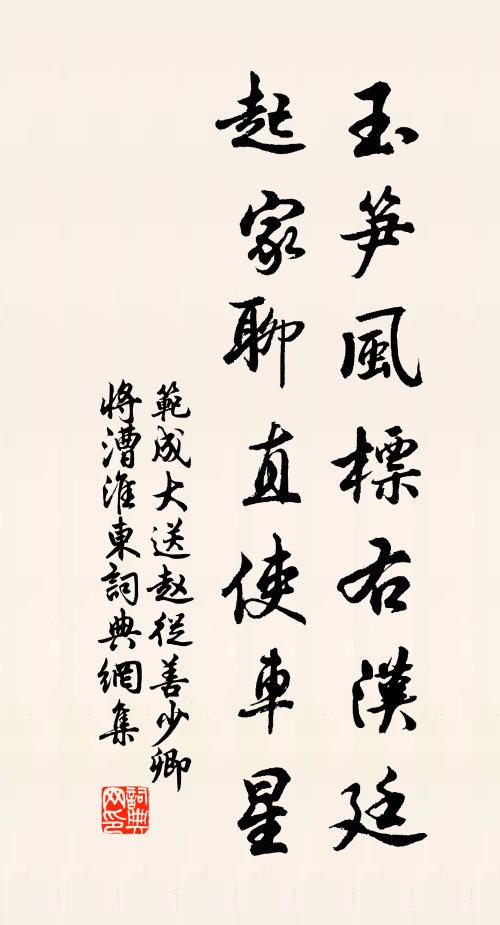 玉笋風標右漢廷
起家聊直使車星
範成大送赵從善少卿
將漕淮東詞典網集
詞典网印